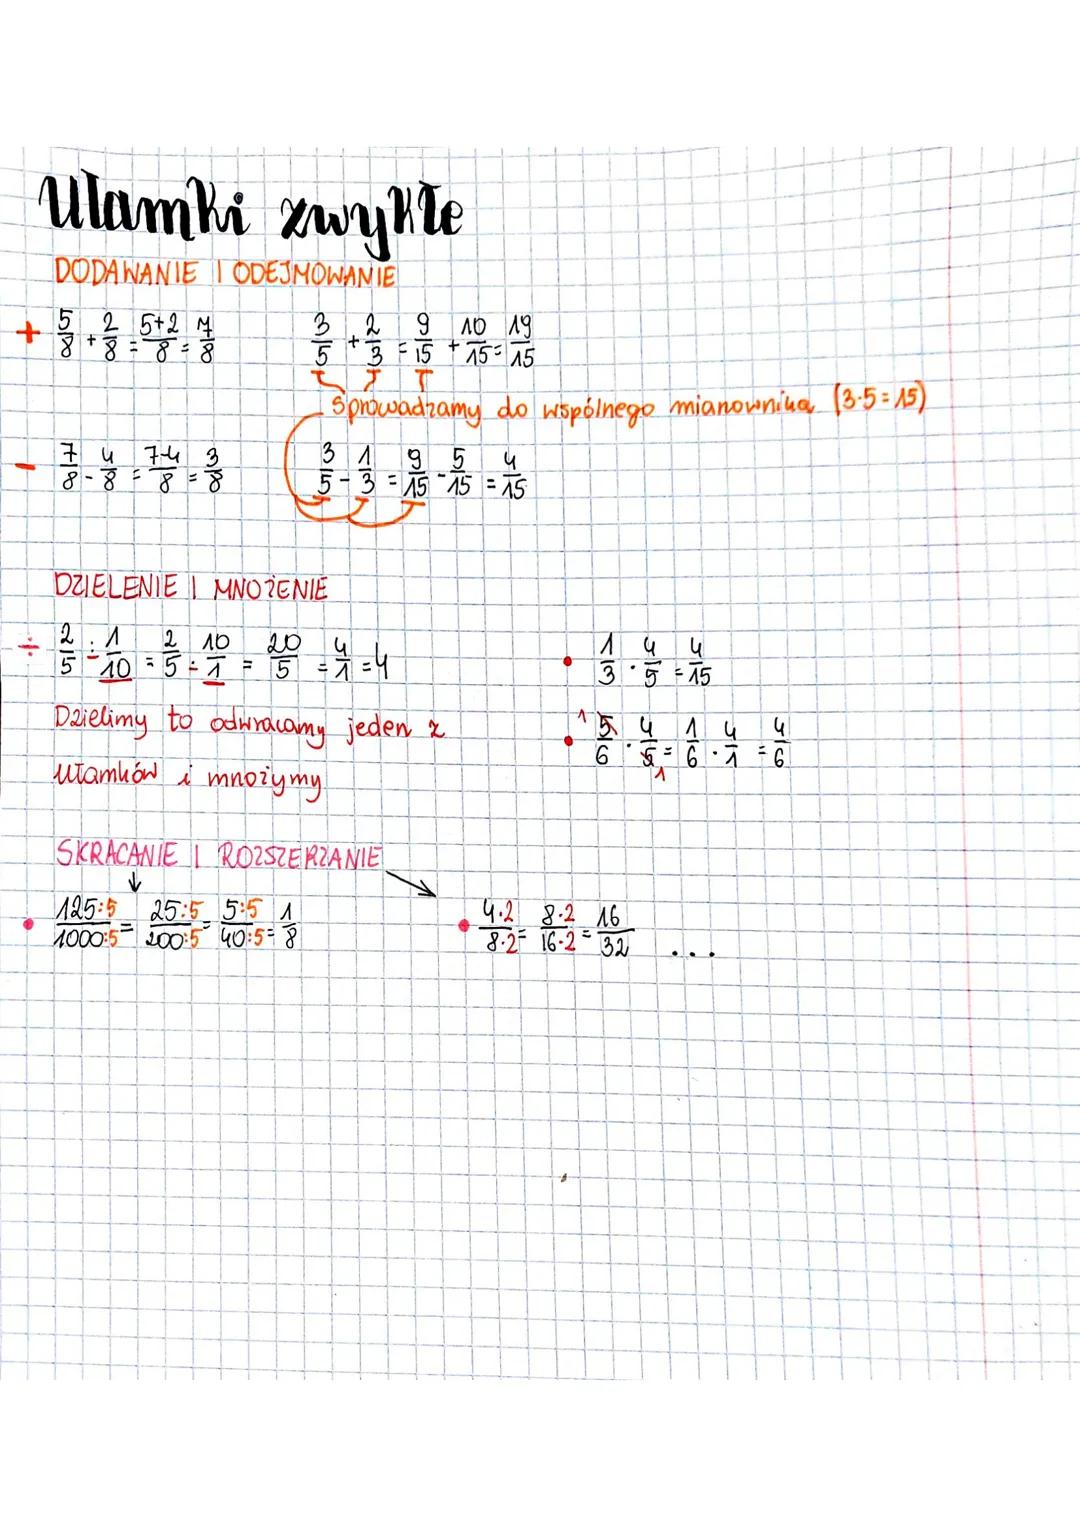 Ułamki zwykłe
DODAWANIE I ODEJMOWANIE
+ 5/8 + 2/8 = 5+2/8 = 7/8 3/5 + 2/3 = 9/15 + 10/15 = 19/15
Sprowadzamy do wspólnego mianownika (3·5=15)
- 7/8 - 4/8 = 7-4/8 = 3/8 3/5 - 1/3 = 9/15 - 5/15 = 4/15
DZIELENIE I MNOŻENIE
÷ 2/5 ÷ 1/10 = 2/5 ÷ 10/1 = 20/5 = 4/1 = 4 • 1/3 · 4/5 = 4/15
Dzielimy to odwracamy jeden z • 1 5/6 · 4/5 1 = 1/6 · 4/1 = 4/6
ułamków i mnożymy
SKRACANIE I ROZSZERZANIE
• 125:5/1000:5 = 25:5/200:5 = 5:5/40:5 = 1/8 • 4·2/8·2 = 8·2/16·2 = 16/32 ...